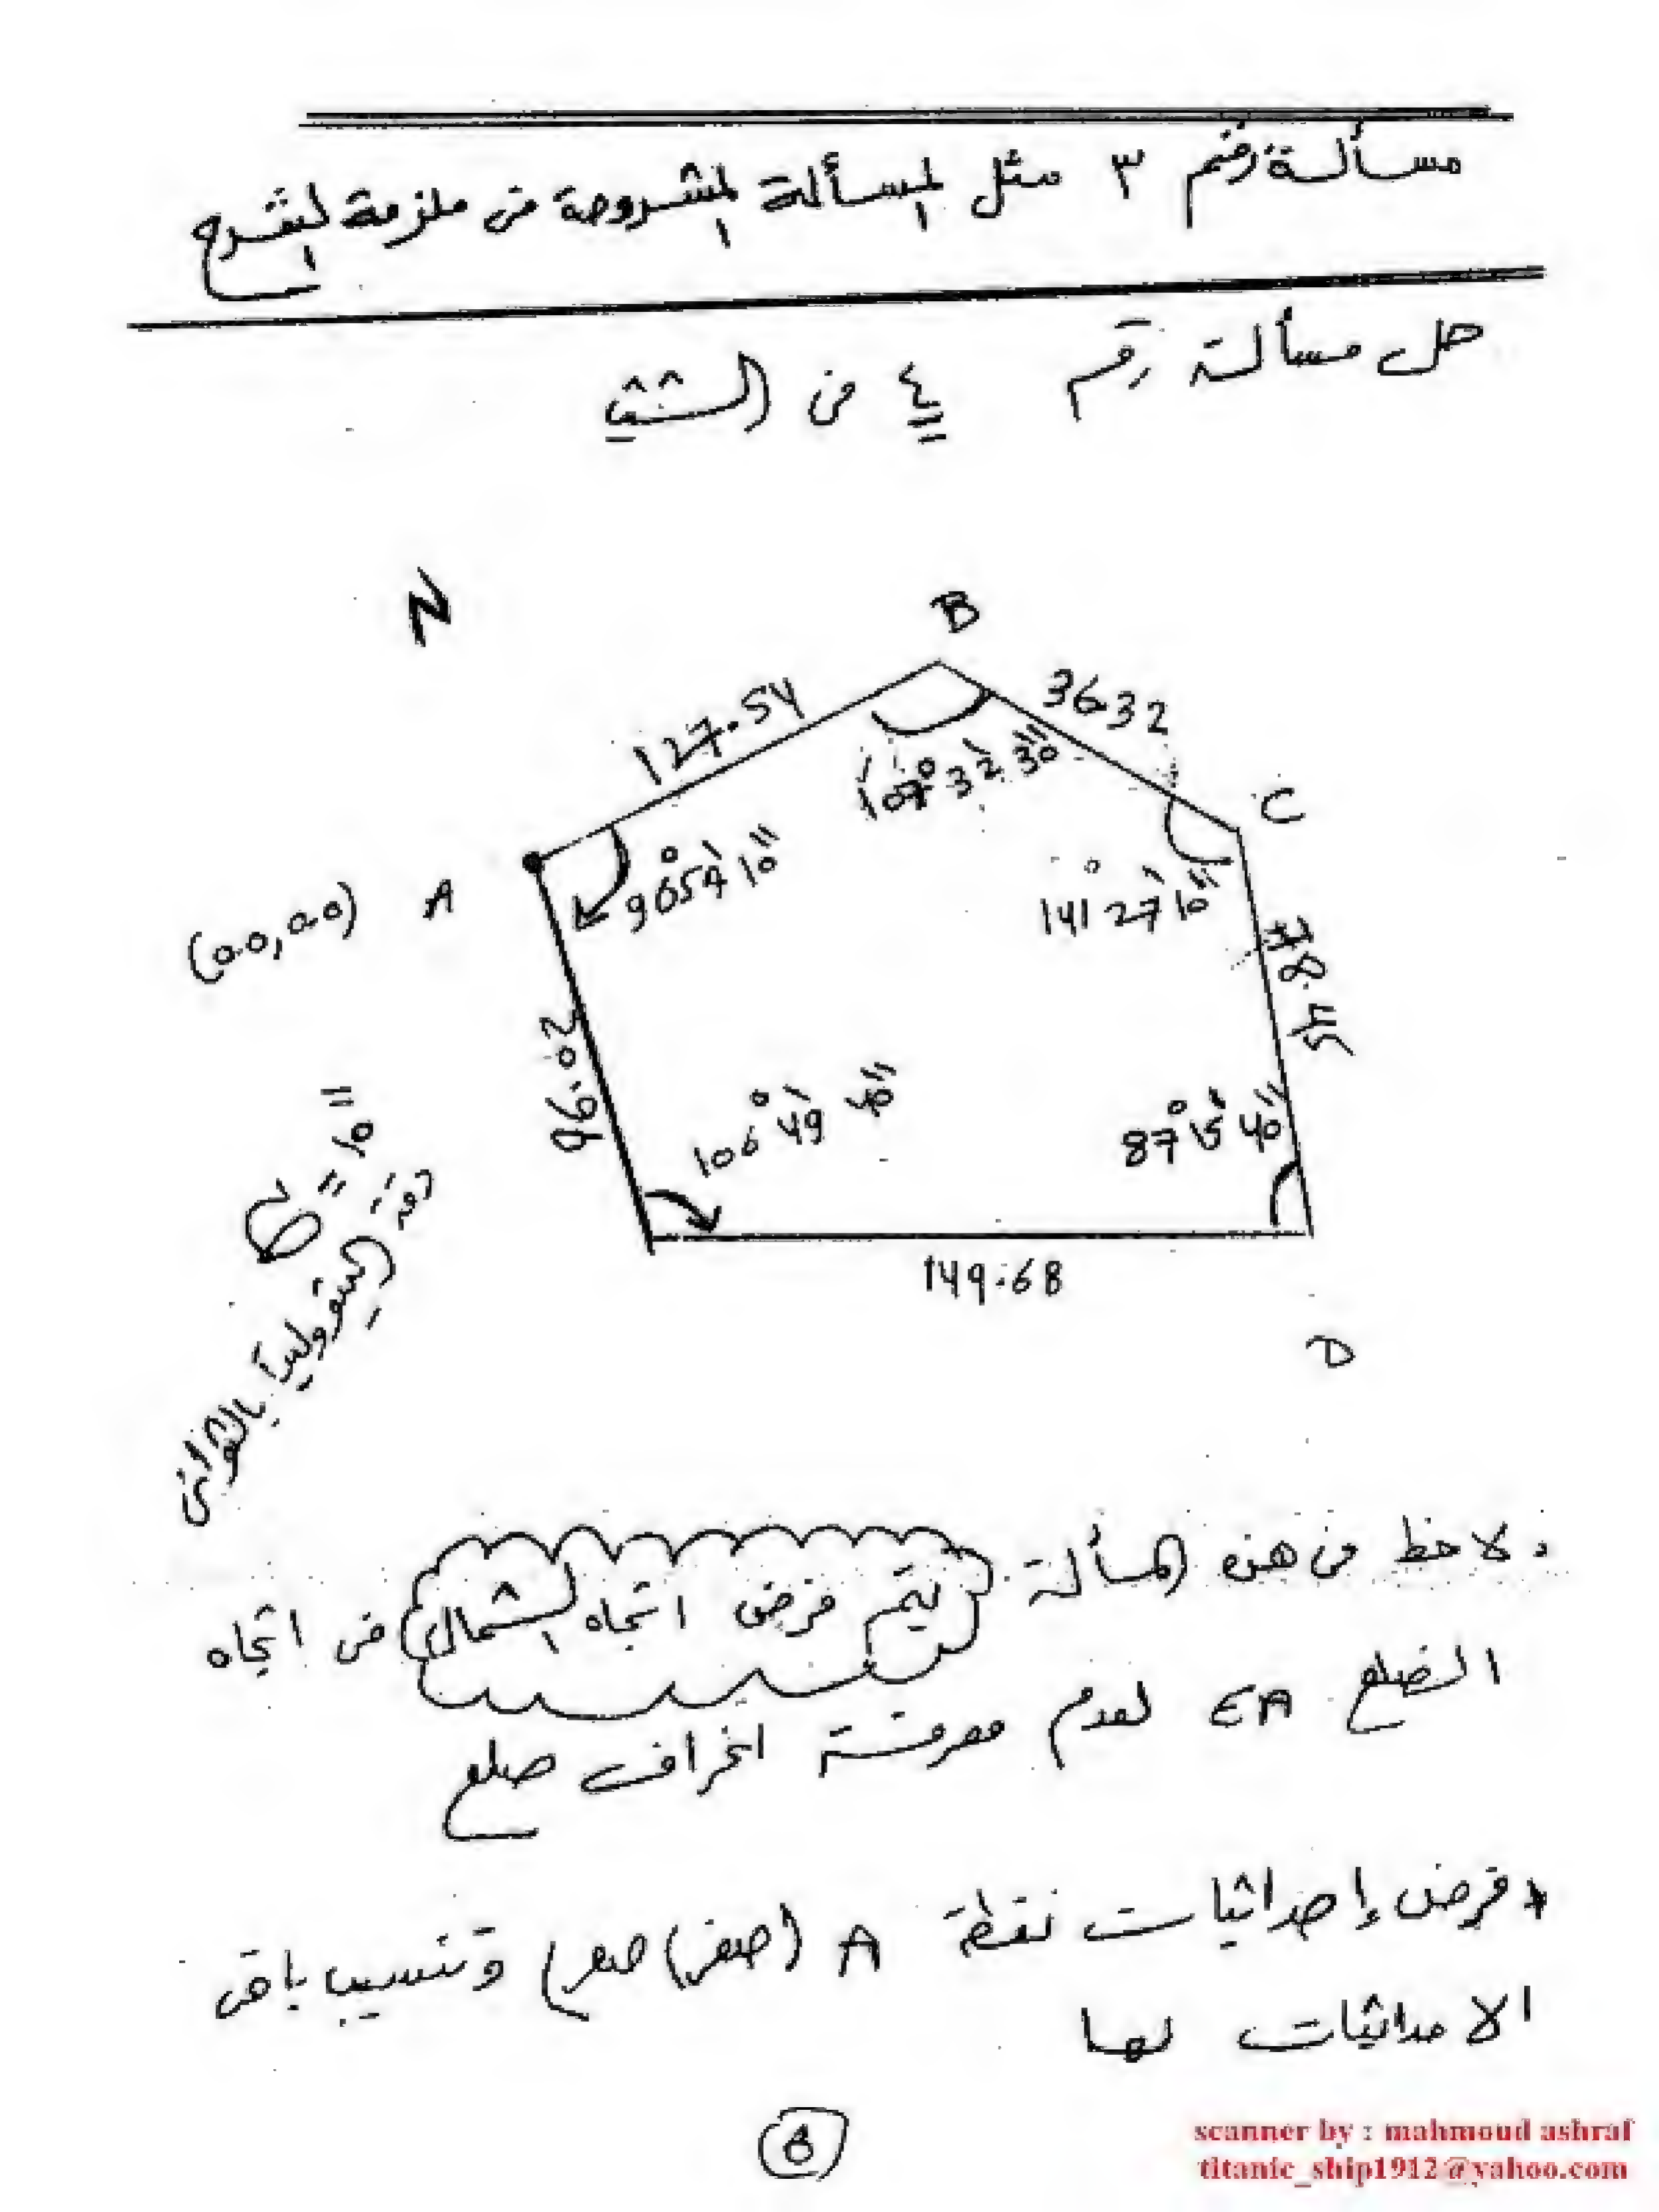 مسألة رقم ٣ مثل المسألة المشروحة فى ملزمة الشرح
حل مسألة رقم ٤ من الشيت
N
B
127.54
36.32
107° 32' 30"
C
96° 54' 10"
A
(0.0, 0.0)
141 27' 10"
78.45
96.02
100° 49' 40"
87° 15' 40"
149.68
D
б = 10"
دقة التيودوليت بالثوانى
لاحظ فى هذه المسألة يتم فرض اتجاه الشمال فى اتجاه
الضلع EA لعدم معرفة انحراف ضلع
فرض إحداثيات نقطة A (صفر، صفر) وتنسيب باقى
الاحداثيات لها
6
scanner by : mahmoud ashraf
titanic_ship1912@yahoo.com